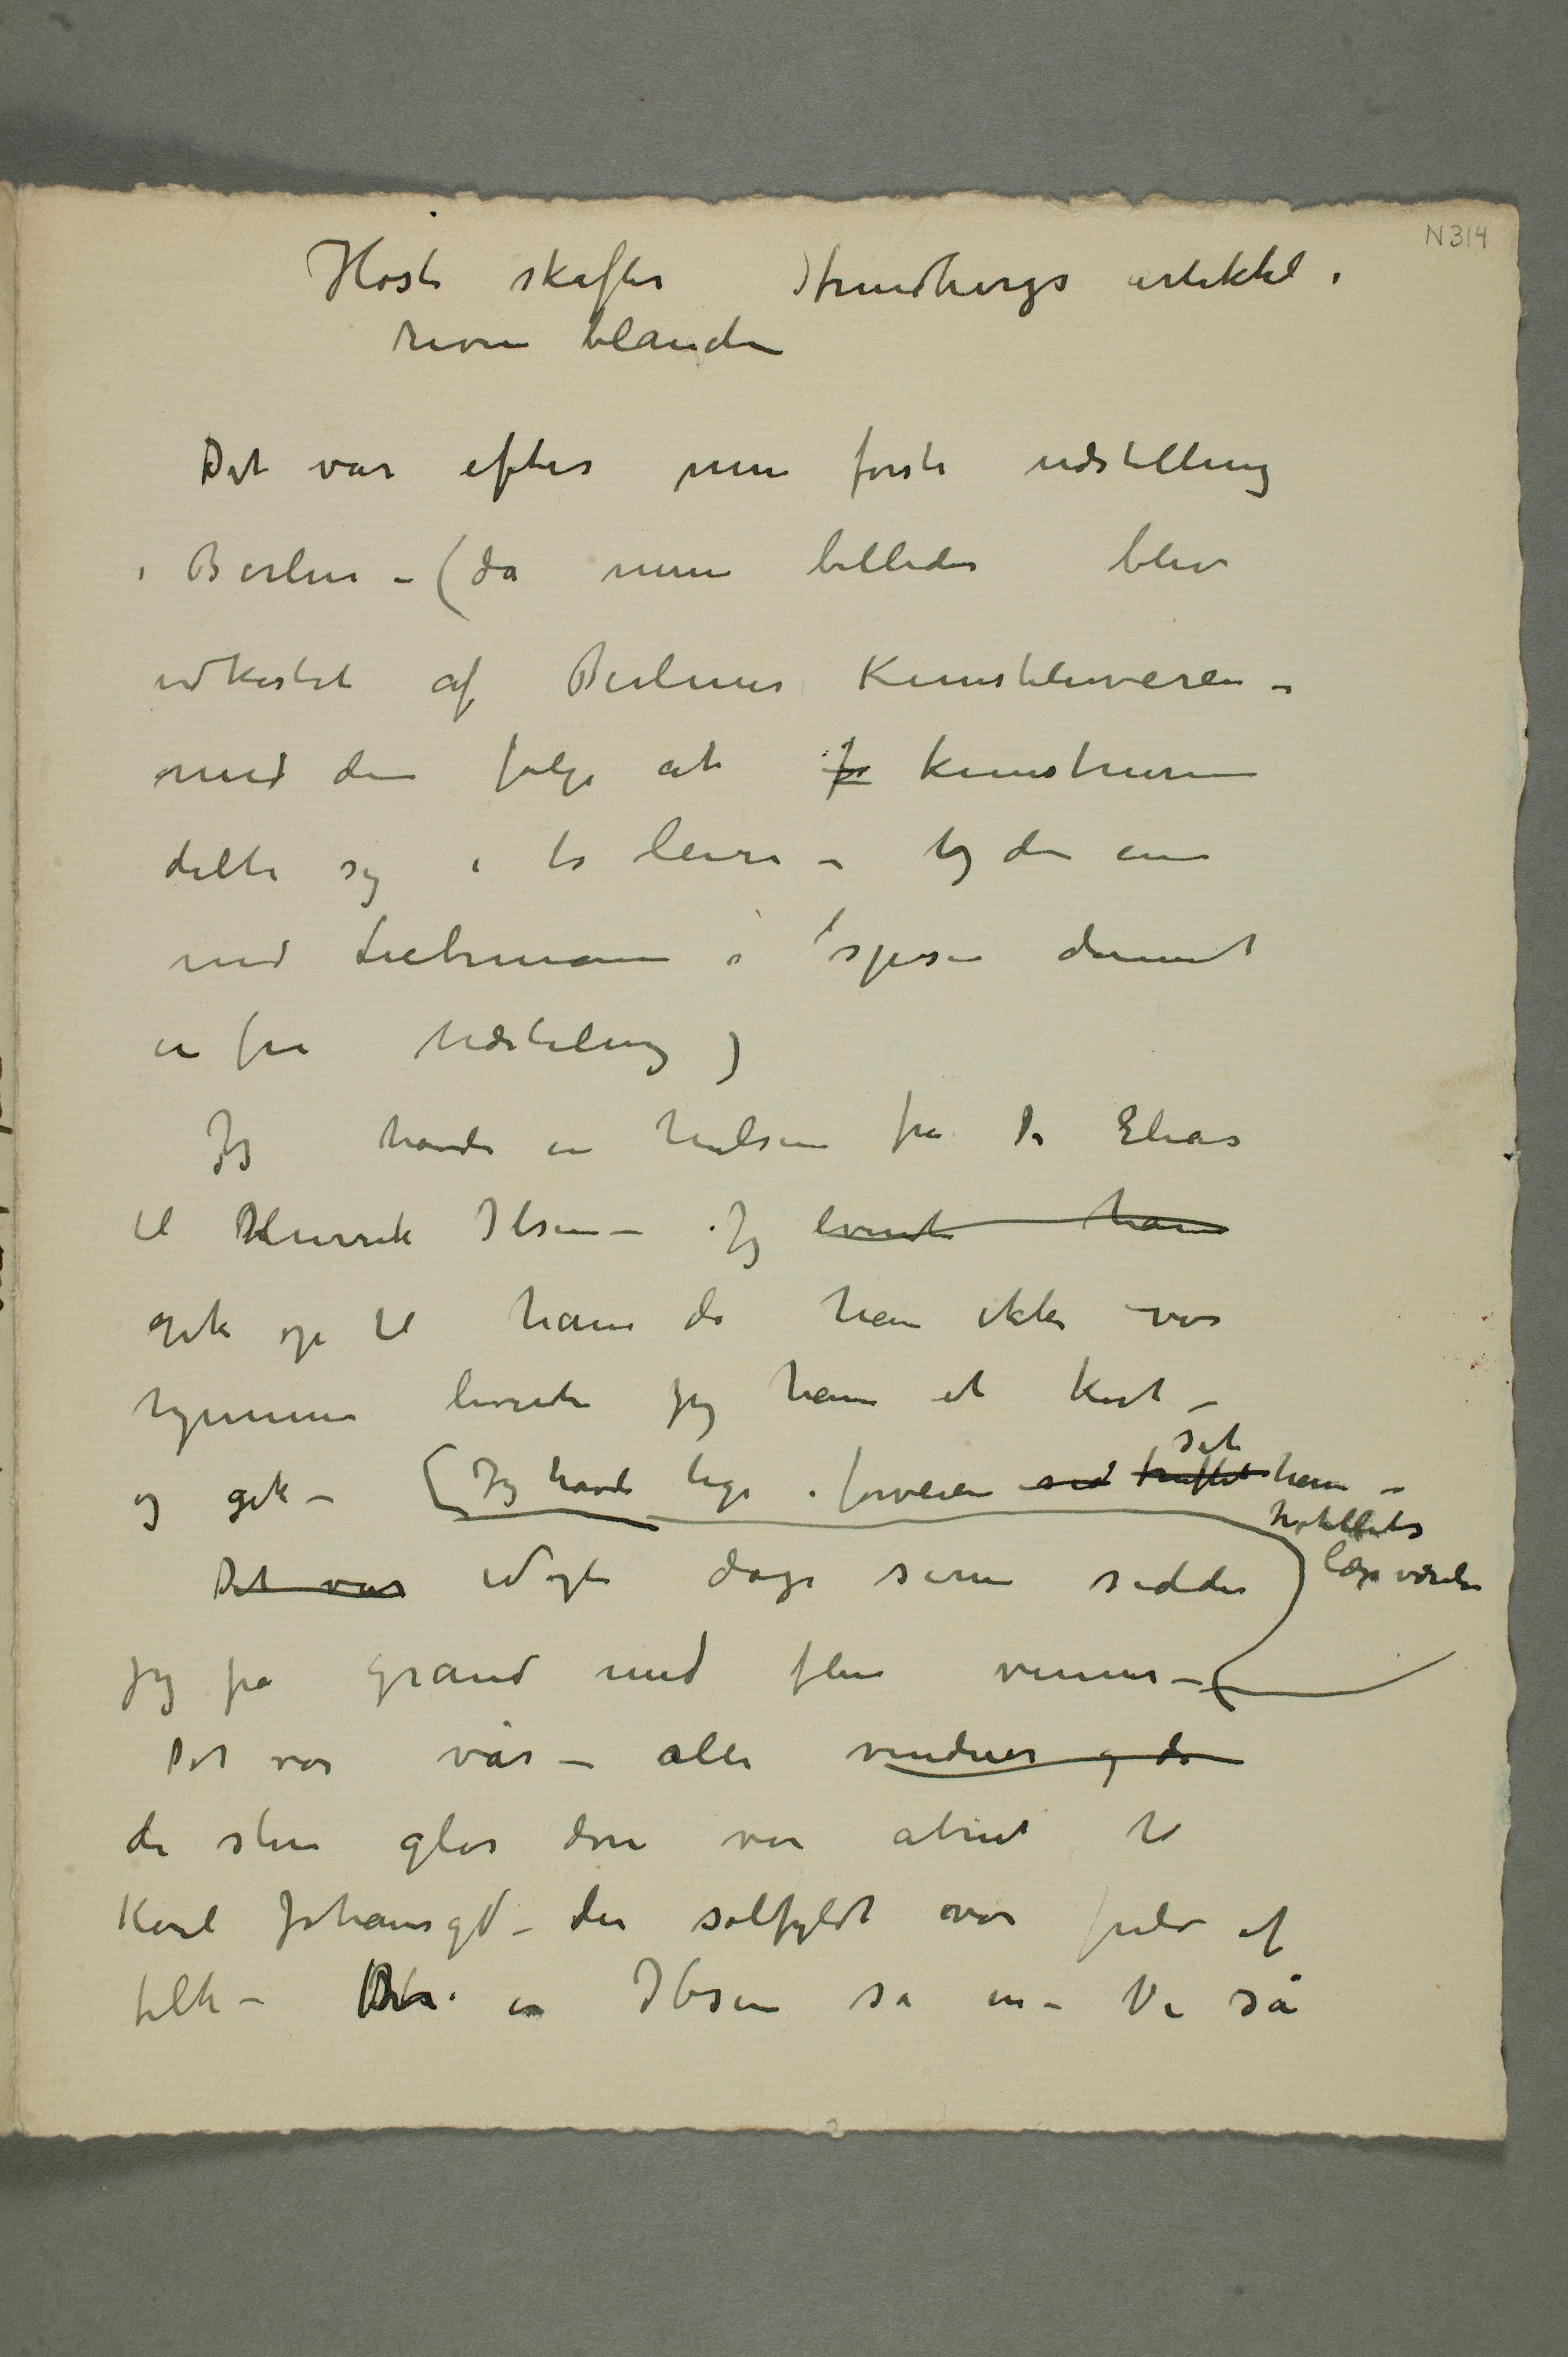 N 314
Høst skaffer Strindbergs artikkel i
revue blanche
Det var efter min første udstilling
i Berlin – (da mine billeder blev
udkastet af Berliner Kunstlerverein –
med den følge at fo kunstneren
delte sig i to leire – og den ene
med Liebermann i spissen dannet
en fri Udstilling)
Jeg havde en hilsen fra Dr Elias
til Henrik Ibsen – Jeg leverte ham
gik op til ham da han ikke var
hjemme leverte jeg ham et kort –
og gik – (Jeg havde lige i forveien sed truffet set ham –
Det var Nogle dage senere sidder
hotellets
læseværelse
jeg på Grand med flere venner –
Det var vår – alle vinduer og de
de store glas døre var åbnet til
Karl Johansgd – der solfyldt var fuld af
folk – Ibsen så en – Vi så